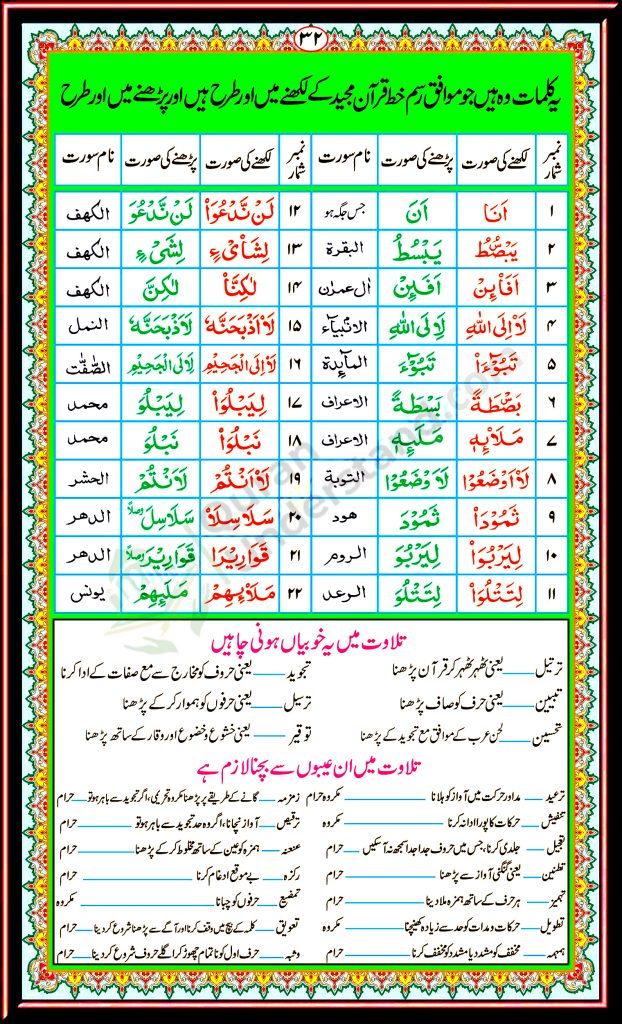 ۳۲
یہ کلمات وہ ہیں جو موافق رسم خط قرآن مجید کے لکھنے میں اور طرح ہیں اور پڑھنے میں اور طرح
نمبر شمار لکھنے کی صورت پڑھنے کی صورت نام سورت نمبر شمار لکھنے کی صورت پڑھنے کی صورت نام سورت
۱ اَنَا اَنَ جس جگہ ہو ۱۲ لَنْ نَّدْعُوَا۟ لَنْ نَّدْعُوَ الکھف
۲ یَبْصُۜطُ یَبْسُطُ البقرة ۱۳ لِشَایْءٍ لِشَیْءٍ الکھف
۳ اَفَا۟ئِنْ اَفَئِنْ اٰل عمرٰن ۱۴ لٰکِنَّا۟ لٰکِنَّ الکھف
۴ لَا۟اِلَی اللّٰهِ لَاِلَی اللّٰهِ الانبیاء ۱۵ لَا۟اَذْبَحَنَّهٗ لَاَذْبَحَنَّهٗ النمل
۵ تَبُوْٓءَا۟ تَبُوْٓءَ المآئدة ۱۶ لَا۟اِلَی الْجَحِیْمِ لَاِلَی الْجَحِیْمِ الصّٰفّٰت
۶ بَصْۜطَةً بَسْطَةً الاعراف ۱۷ لِیَبْلُوَا۟ لِیَبْلُوَ محمد
۷ مَلَا۟ئِهٖ مَلَئِهٖ الاعراف ۱۸ نَبْلُوَا۟ نَبْلُوَ محمد
۸ لَا۟اَوْضَعُوْا لَاَوْضَعُوْا التوبة ۱۹ لَا۟اَنْتُمْ لَاَنْتُمْ الحشر
۹ ثَمُوْدَا۟ ثَمُوْدَ هود ۲۰ سَلَاسِلَا۟ سَلَاسِلَ وصلاً الدهر
۱۰ لِیَرْبُوَا۟ لِیَرْبُوَ الروم ۲۱ قَوَارِیْرَا۟ قَوَارِیْرَ وصلاً الدهر
۱۱ لِتَتْلُوَا۟ لِتَتْلُوَ الرعد ۲۲ مَلَا۟ئِهِمْ مَلَئِهِمْ یونس
تلاوت میں یہ خوبیاں ہونی چاہیں
ترتیل یعنی ٹھہر ٹھہر کر قرآن پڑھنا تجوید یعنی حروف کو مخارج سے مع صفات کے ادا کرنا
تبیین یعنی حرف کو صاف پڑھنا ترسیل یعنی حرفوں کو ہموار کر کے پڑھنا
تحسین لحن عرب کے موافق مع تجوید کے پڑھنا توقیر یعنی خشوع و خضوع اور وقار کے ساتھ پڑھنا
تلاوت میں ان عیبوں سے بچنا لازم ہے
ترعید مد اور حرکت میں آواز کو ہلانا مکروہ حرام زمزمہ گانے کے طریقے پر پڑھنا مکروہ تحریمی، اگر تجوید سے باہر ہو تو حرام
تنفیش حرکات کا پورا ادا نہ کرنا مکروہ ترقیص آواز نچانا، اگر وہ حد تجوید سے باہر ہو تو حرام
تعجیل جلدی کرنا، جس میں حروف جدا جدا سمجھ نہ آسکیں حرام عنعنہ ہمزہ کو عین کے ساتھ مخلوط کر کے پڑھنا حرام
تطنین یعنی گنگنی آواز سے پڑھنا حرام رکزہ بے موقع ادغام کرنا حرام
تہمیز ہر حرف کے ساتھ ہمزہ ملا دینا حرام تمضیغ حرفوں کو چبانا مکروہ
تطویل حرکات و مدات کو حد سے زیادہ کھینچنا مکروہ تعویق کلمہ کے بیچ میں وقف کرنا اور آگے سے پڑھنا شروع کر دینا حرام
ہمہمہ مخفف کو مشدد یا مشدد کو مخفف کرنا حرام وثبہ حرف اول کو ناتمام چھوڑ کر اگلے حروف شروع کر دینا حرام